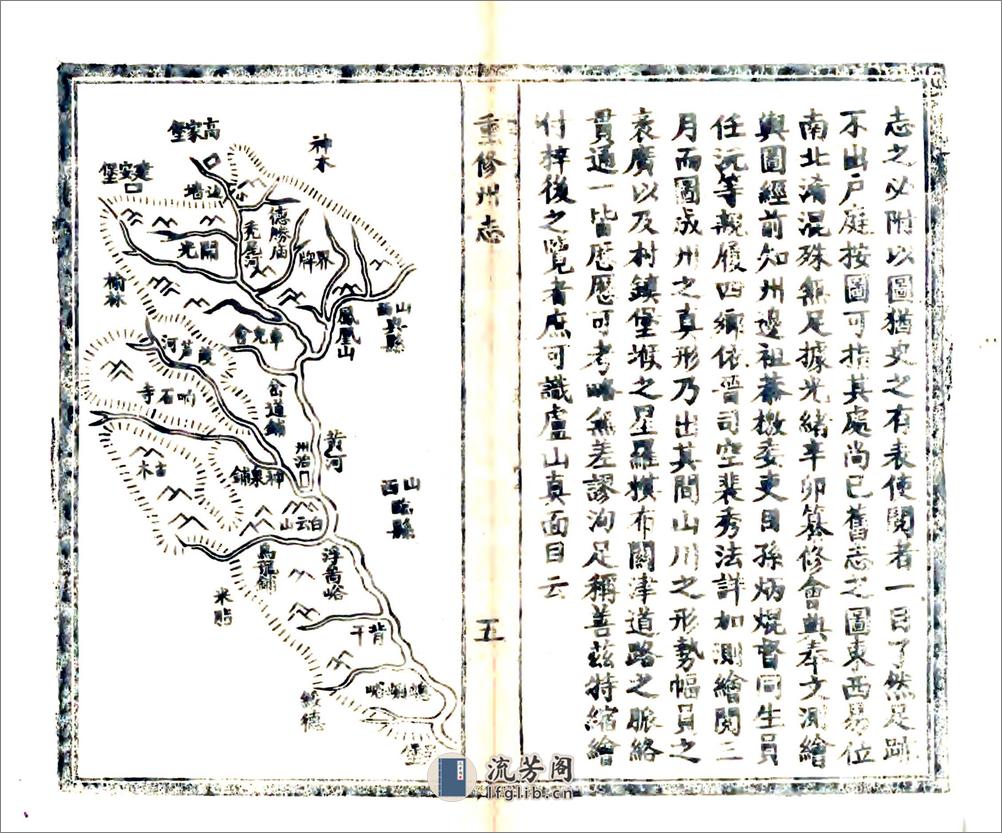 志之必附以圖猶史之有表使閱者一目了然足跡
不出戶庭按圖可指其處尚已舊志之圖東西易位
南北淆混殊無足據光緒辛卯篹修會典奉文測繪
輿圖經前知州邊祖恭檄委吏目孫炳焜督同生員
任沅等親履四鄉依晉司空裴秀法詳加測繪閱二
月而圖成州之真形乃出其間山川之形勢幅員之
袤廣以及村鎮堡堠之星羅棋布關津道路之脈絡
貫通一皆歷歷可考略無差謬洵足稱善茲特縮繪
付梓後之覽者庶可識盧山真面目云
重修州志
五
神木
高家堡
建安堡
邊墻
德勝庙
禿尾河
界牌
開光
山西興縣
鳳凰山
榆林
車兒會
葭芦河
岔道鋪
响石寺
黃河
州治
神泉鋪
山西臨縣
古木
白云山
烏龍鋪
浮啚峪
米脂
背干
綏德
螅蜊峪
堡
流芳阁
lfglib.cn